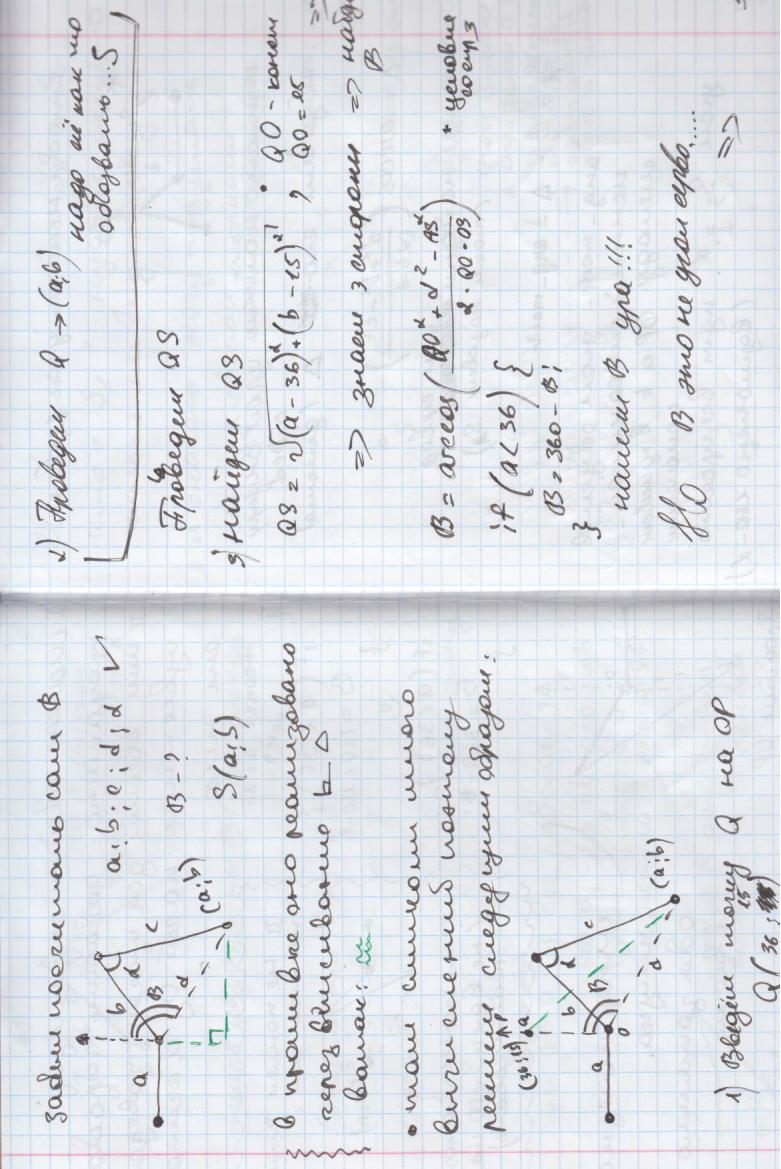 Задачи посчитать сам B
a; b; c; d; d √
B - ?
S(a; b)
a
b
c
d
B
d
(a; b)
в прошивке оно реализовано
через вписывание ⊿
• там слишком много
вычислений поэтому
решим следующим образом:
(36; 15)
AP
Q
a
b
c
d
B
d
O
(a; b)
1) Введём точку Q на OP
Q(36; 15)
2) Проведём Q → (a; b)
надо её как то
обозвать...S
Проведём QS
3) найдём QS
QS = √((a - 36)² + (b - 15)²) , • QO - конст
QO = 15
=>
=> знаем 3 стороны => найдём
B
B = arccos( (QO² + d² - AS²) / (2 · QO · OS) )
+ условие
if (a < 36) {
B = 360 - B;
}
нашли B ура!!!
Но B это не угол серво.....
=>